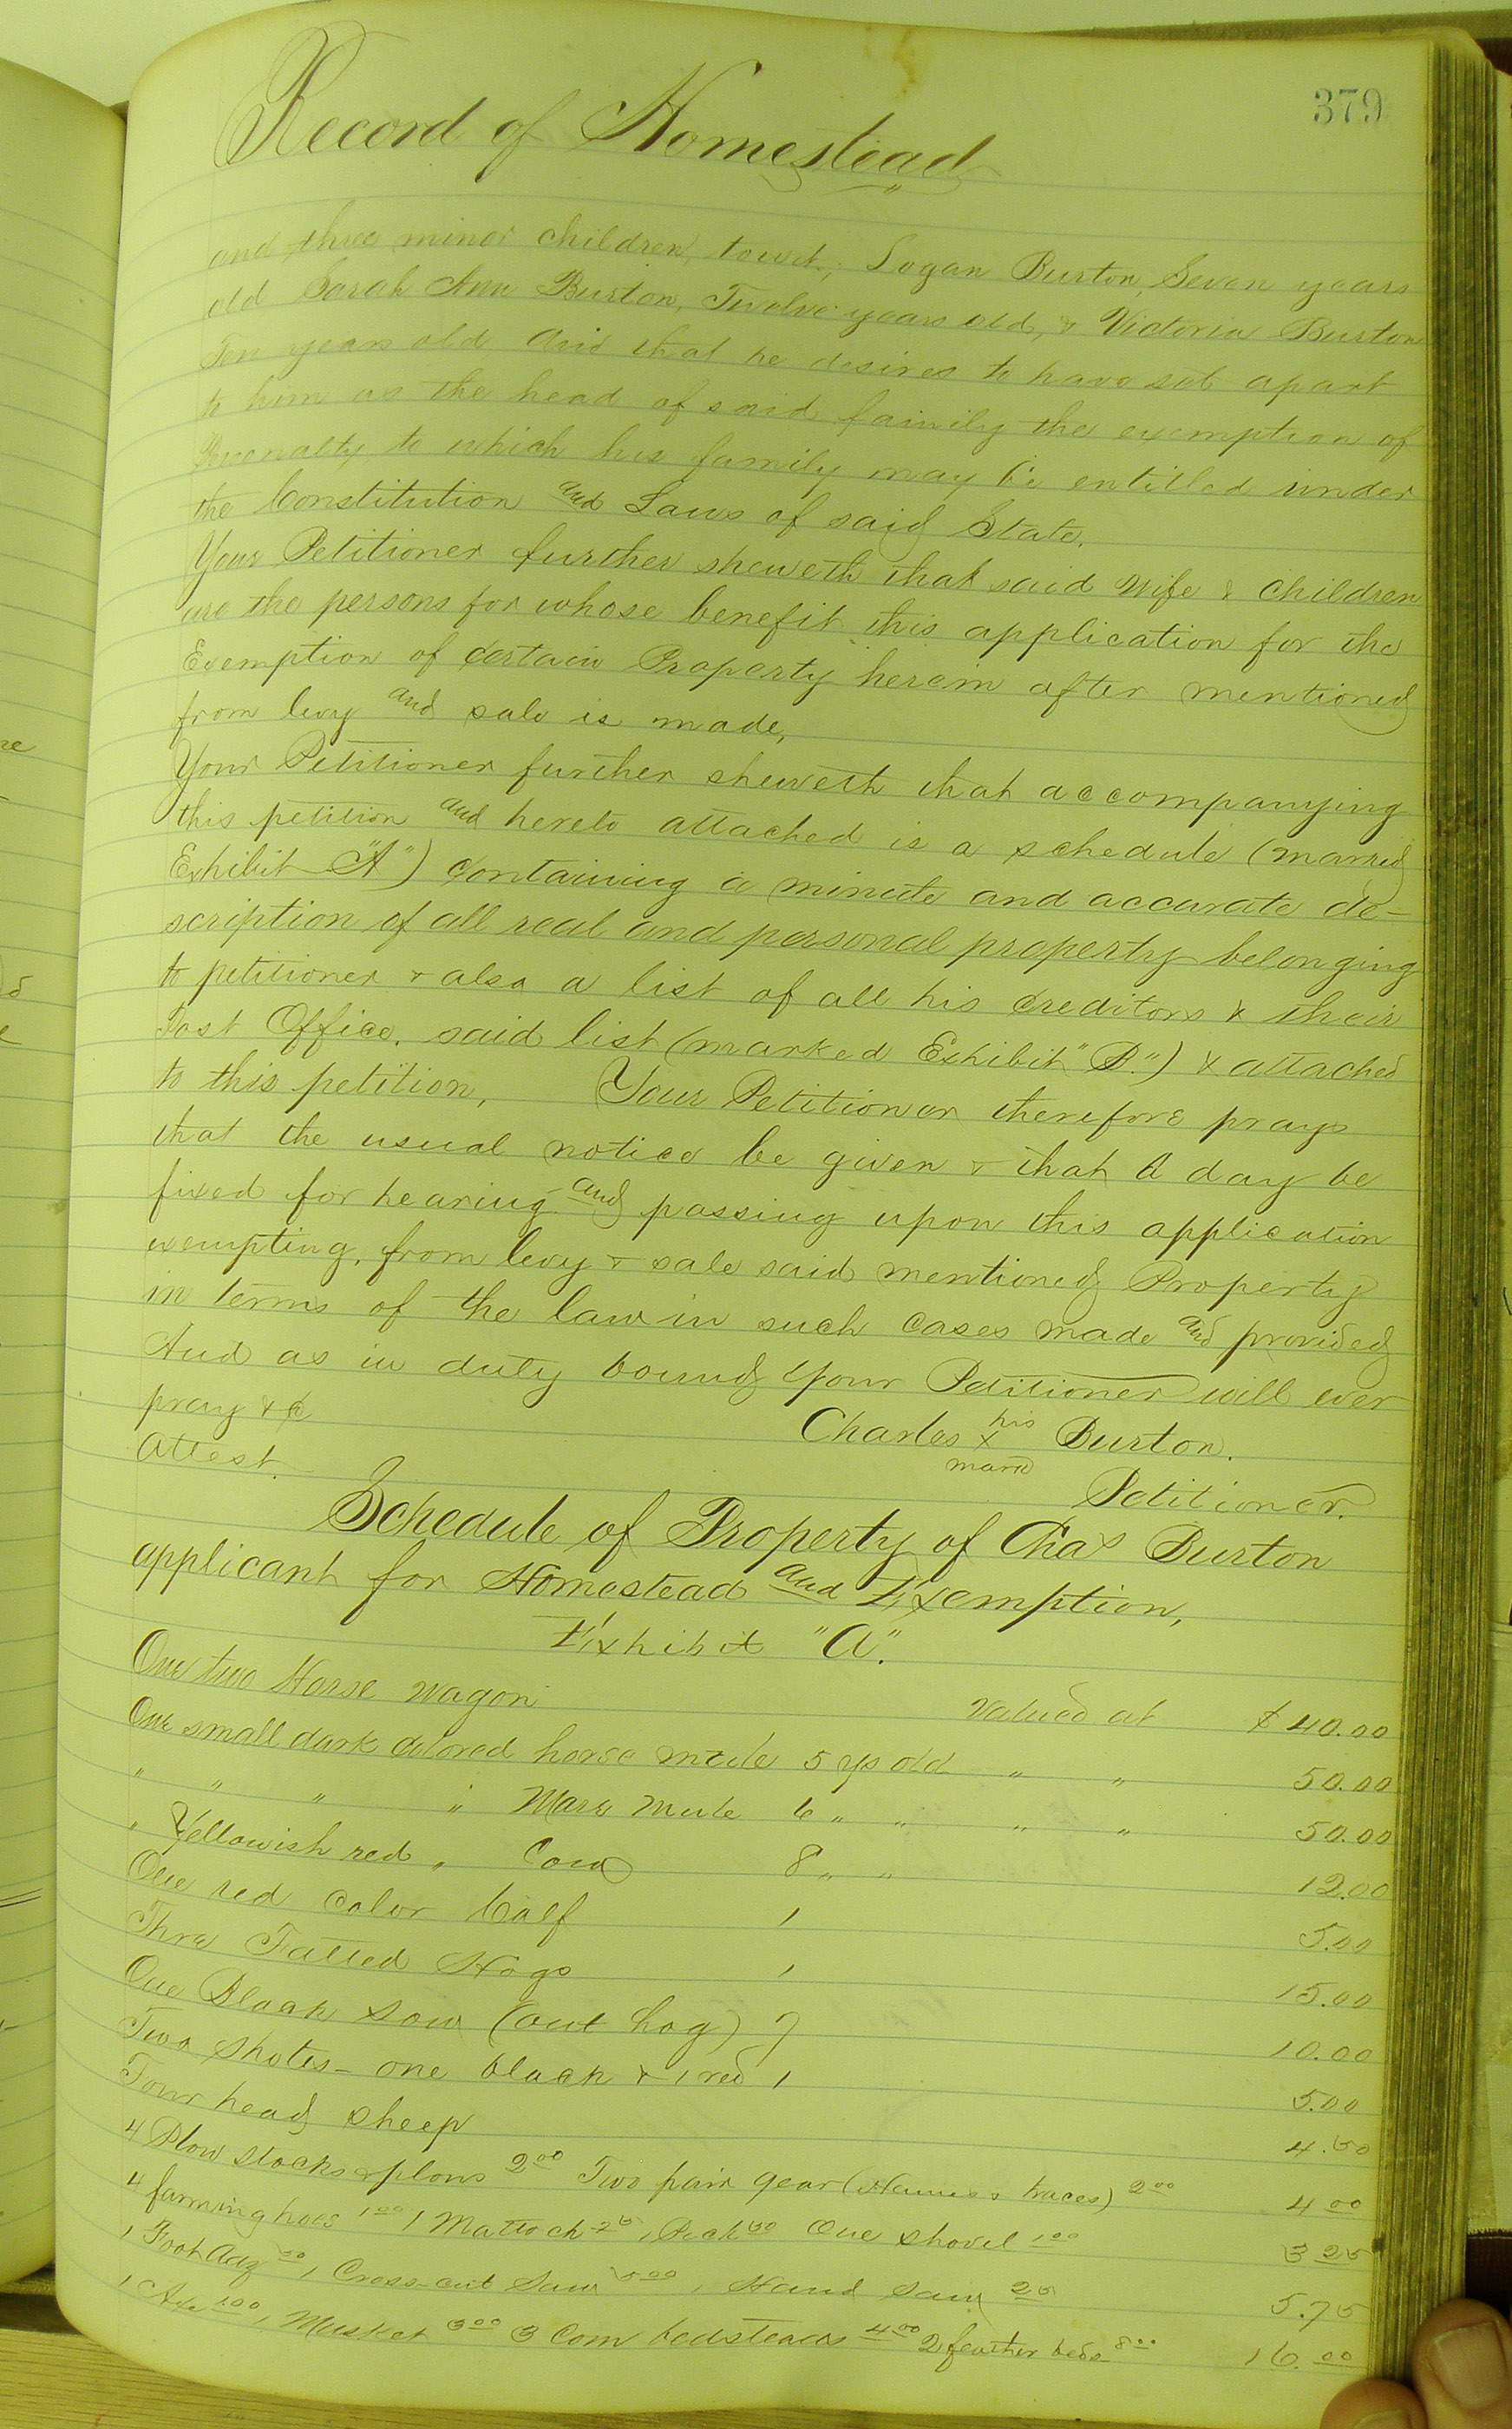 379
Record of Homestead
and three minor children, towit; Logan Burton, Seven years
old Sarah Ann Burton, Twelve years old, & Victoria Burton
Ten years old And that he desires to have set apart
to him as the head of said family the exemption of
Personalty to which his family may be entitled under
the Constitution and Laws of said State.
Your Petitioner further sheweth that said wife & children
are the persons for whose benefit this application for the
Exemption of certain Property herein after mentioned
from levy and sale is made,
Your Petitioner further sheweth that accompanying
this petition and hereto attached is a schedule (marked
Exhibit "A") containing a minute and accurate de-
scription of all real and personal property belonging
to petitioner & also a list of all his creditors & their
Post Office, said list (marked Exhibit "B.") & attached
to this petition, Your Petitioner therefore prays
that the usual notice be given & that a day be
fixed for hearing and passing upon this application
exempting, from levy & sale said mentioned Property
in terms of the law in such cases made and provided
And as in duty bound your Petitioner will ever
pray &c
Charles his x mark Burton.
Attest.
Petitioner.
Schedule of Property of Chas Burton
applicant for Homestead and Exemption,
Exhibit "A".
One two Horse wagon valued at $40.00
One small dark colored horse mule 5 ys old " " 50.00
" " " " Mare Mule 6 " " " " 50.00
" Yellowish red " Cow 8 " " 12.00
One red color Calf 1 5.00
Three Fatted Hogs 1 15.00
One Black Sow (out hog) 7 10.00
Two Shotes - one black & 1 red 1 5.00
Four head sheep 4.50
4 Plow stocks & plows 2 00 Two pair gear (Hames & traces) 2 00 4 00
4 farming hoes 1 00 1 Mattock 75 1 Pick 50 One shovel 1 00 3 25
1 Foot Adz 50 1 Cross-cut Saw 5 00 1 Hand Saw 25 5.75
1 Axe 1.00 1 Musket 3 00 3 Com bedsteads 4 00 2 feather beds 8 00 16.00